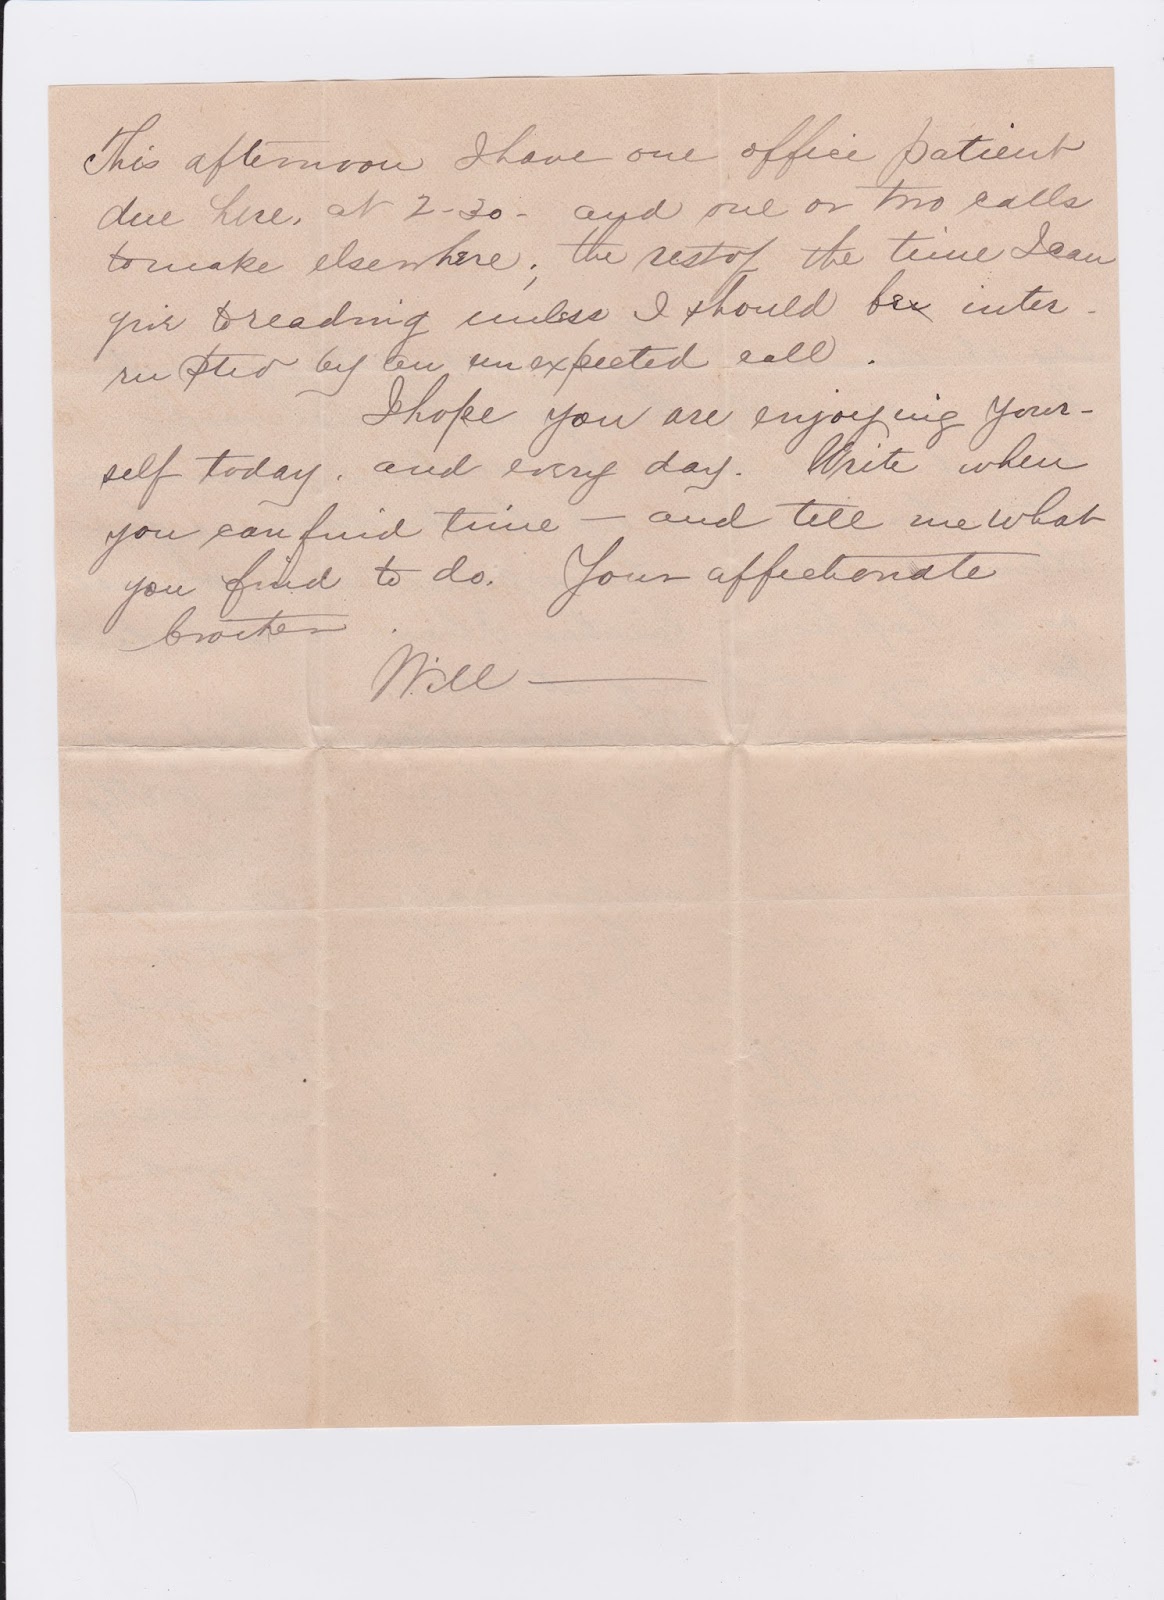 This afternoon I have one office patient
due here, at 2-30- and one or two calls
to make elsewhere; the rest of the time I can
give to reading unless I should be inter-
rupted by an unexpected call.
I hope you are enjoying your-
self today, and every day. Write when
you can find time — and tell me what
you find to do. Your affectionate
brother.
Will —